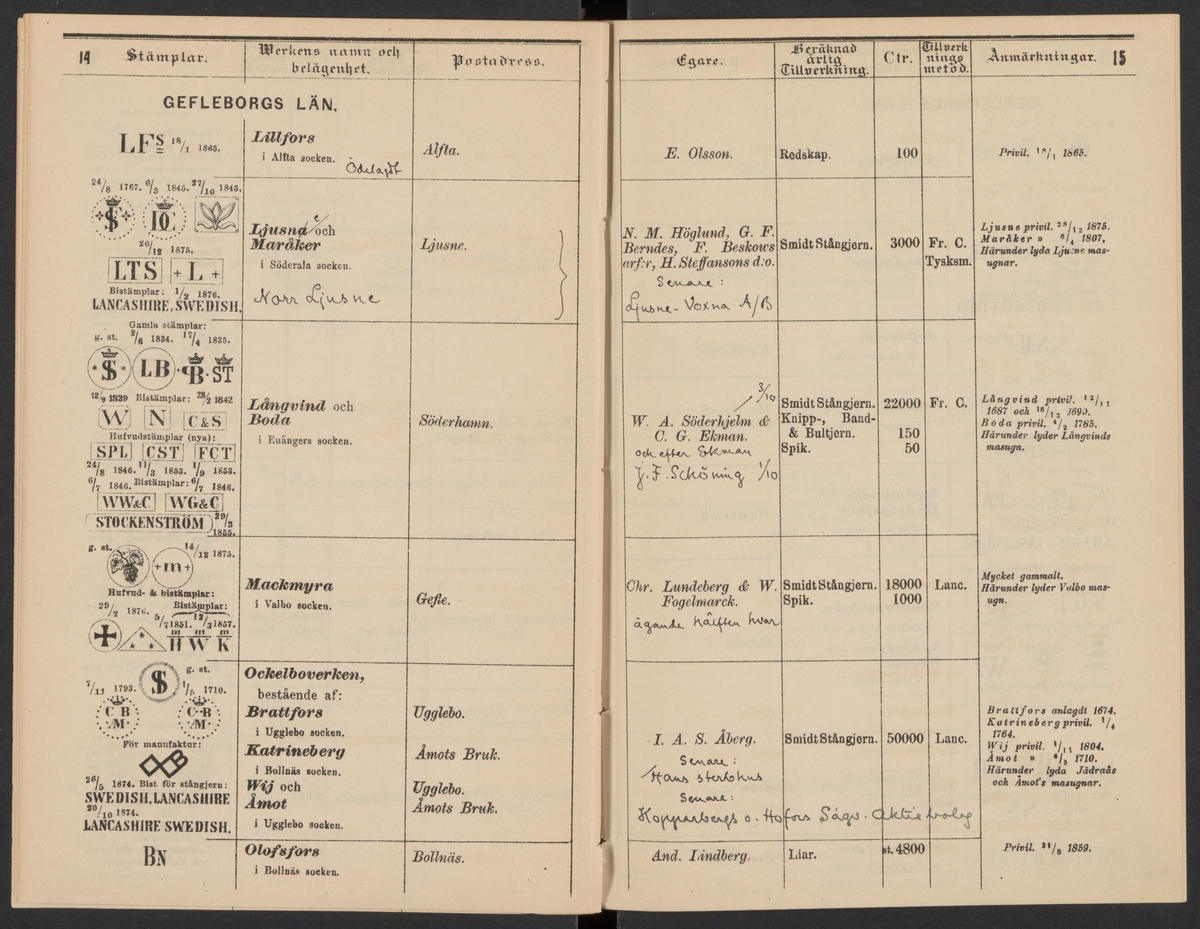 14
Stämplar.
Werkens namn och
belägenhet.
Postadress.
GEFLEBORGS LÄN.
LFS 18/1 1865.
Lillfors
i Alfta socken.
Ödelagdt
Alfta.
24/8 1767. 6/3 1845. 27/10 1845.
S
DC
26/12 1875.
LTS + L +
Bistämplar: 1/2 1876.
LANCASHIRE, SWEDISH.
Ljusna och
e
Maråker
i Söderala socken.
Norr Ljusne
Ljusne.
Gamla stämplar:
g. st. 2/6 1834. 17/4 1835.
S LB B ST
12/9 1839 Bistämplar: 28/2 1842
W N C&S
Hufvudstämplar (nya):
SPL CST FCT
24/8 1846. 11/3 1853. 1/9 1853.
6/7 1846. Bistämplar: 6/7 1846.
WW&C WG&C
STOCKENSTRÖM 29/3
1855.
Långvind och
Boda
i Enångers socken.
Söderhamn.
g. st. 14/12 1875.
+m+
Hufvud- & bistämplar:
29/2 1876. Bistämplar:
5/7 1851. 12/3 1857.
m m m
H W K
Mackmyra
i Valbo socken.
Gefle.
g. st.
7/11 1793. S 1/5 1710.
C B C B
M M
För manufaktur:
26/5 1874. Bist för stångjern:
SWEDISH. LANCASHIRE
20/10 1874.
LANCASHIRE SWEDISH.
Ockelboverken,
bestående af:
Brattfors
i Ugglebo socken.
Katrineberg
i Bollnäs socken.
Wij och
Åmot
i Ugglebo socken.
Ugglebo.
Åmots Bruk.
Ugglebo.
Åmots Bruk.
BN
Olofsfors
i Bollnäs socken.
Bollnäs.
Egare.
Beräknad
årlig
Tillverkning.
Ctr.
Tillverk
nings
metod.
Anmärkningar.
15
E. Olsson.
Redskap.
100
Privil. 18/1 1865.
N. M. Höglund, G. F.
Berndes, F. Beskows
arf:r, H. Steffansons d:o.
Senare:
Ljusne-Voxna A/B
Smidt Stångjern.
3000
Fr. C.
Tysksm.
Ljusne privil. 28/12 1875.
Maråker » 6/4 1807.
Härunder lyda Ljusne mas-
ugnar.
3/10
W. A. Söderhjelm &
C. G. Ekman.
och efter Ekman
J. F. Schöning 1/10
Smidt Stångjern.
Knipp-, Band-
& Bultjern.
Spik.
22000
150
50
Fr. C.
Långvind privil. 12/11
1687 och 16/12 1690.
Boda privil. 4/2 1785.
Härunder lyder Långvinds
masugn.
Chr. Lundeberg & W.
Fogelmarck.
ägande hälften hvar
Smidt Stångjern.
Spik.
18000
1000
Lanc.
Mycket gammalt.
Härunder lyder Valbo mas-
ugn.
I. A. S. Åberg.
Senare:
Hans sterbhus
Senare:
Kopparbergs o. Hofors Sågv. Aktiebolag
Smidt Stångjern.
50000
Lanc.
Brattfors anlagdt 1674.
Katrineberg privil. 1/4
1764.
Wij privil. 1/11 1804.
Åmot » 6/5 1710.
Härunder lyda Jädraås
och Åmot's masugnar.
And. Lindberg.
Liar.
st. 4800
Privil. 31/8 1859.